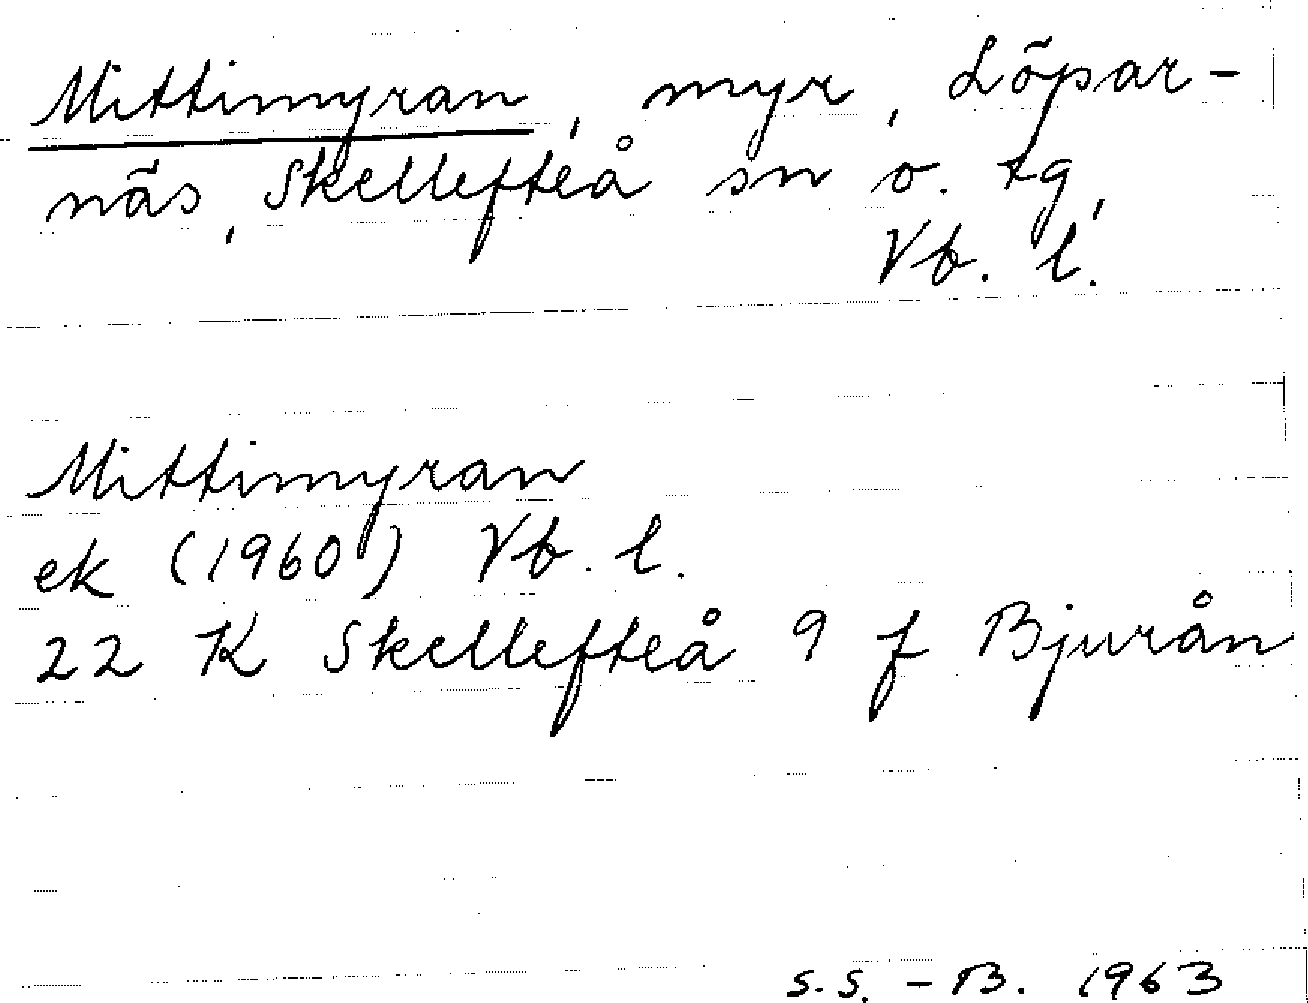 Mittimyran, myr, Löpar-
näs, Skellefteå sn o. tg,
Vb. l.
Mittimyran
ek (1960) Vb. l.
22 K Skellefteå 9 f Bjurån
S.S. - B. 1963